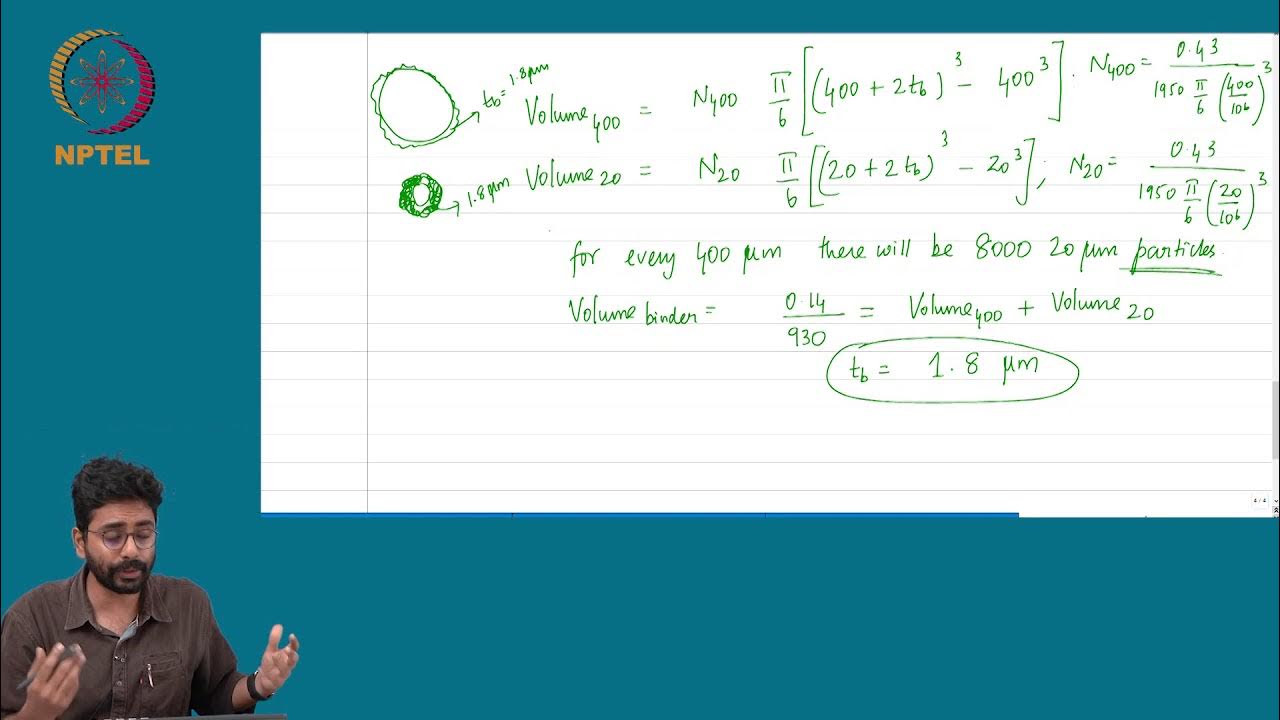 NPTEL
t_b = 1.8 μm
Volume_400 = N_400 π/6 [(400 + 2t_b)^3 - 400^3]. N_400 = 0.43 / 1950 π/6 (400/10^6)^3
1.8 μm
Volume_20 = N_20 π/6 [(20 + 2t_b)^3 - 20^3]; N_20 = 0.43 / 1950 π/6 (20/10^6)^3
for every 400 μm there will be 8000 20 μm particles.
Volume binder = 0.14 / 930 = Volume_400 + Volume_20
t_b = 1.8 μm
4 / 4